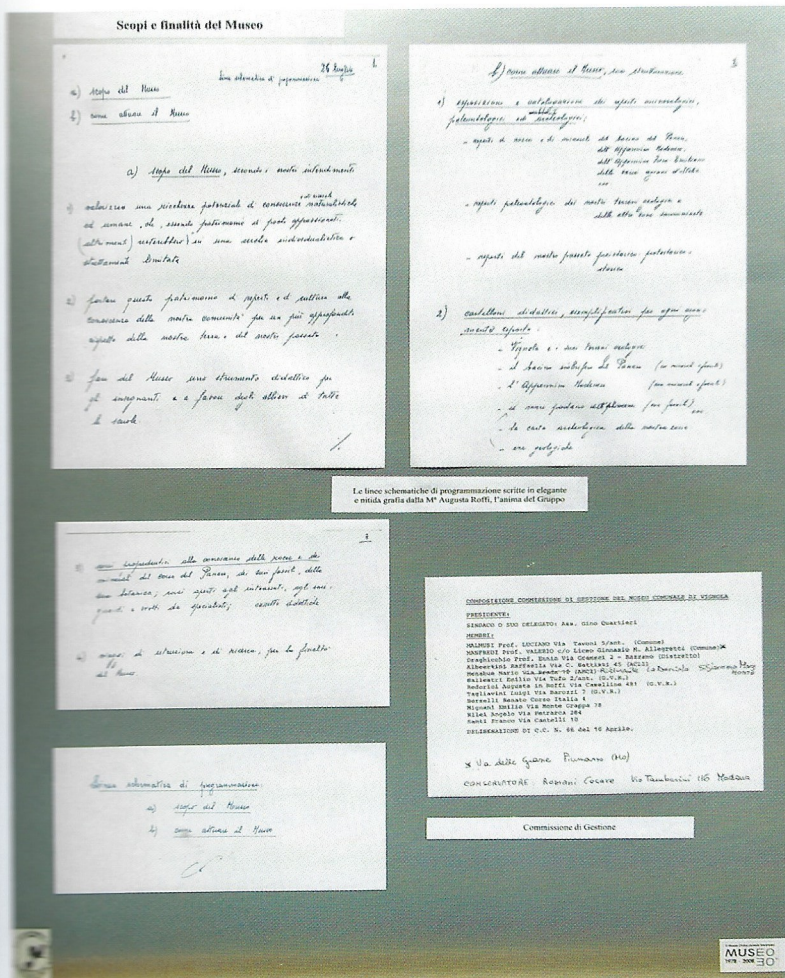 Scopi e finalità del Museo
26 Luglio 1.
Linee schematiche di programmazione
a) scopo del Museo
b) come attuare il Museo
a) scopo del Museo, secondo i nostri intendimenti
1) valorizzare una ricchezza potenziale di conoscenze naturalistiche
ed umane, che, essendo patrimonio di pochi appassionati,
(altrimenti) resterebbero in una cerchia individualistica e
strettamente limitata
2) portare questo patrimonio di reperti e di cultura alla
conoscenza della nostra comunità per un più approfondito
rispetto della nostra terra e del nostro passato.
3) fare del Museo uno strumento didattico per
gli insegnanti e a favore degli allievi di tutte
le scuole.
·/.
2
b) come attuare il Museo, sua strutturazione
1) esposizione e catalogazione dei reperti mineralogici,
paleontologici ed archeologici;
- reperti di rocce e di minerali del bacino del Panaro,
dell'Appennino Modenese,
dell'Appennino Tosco Emiliano
delle varie regioni d'Italia
- reperti paleontologici dei nostri terreni geologici e
delle altre zone
- reperti del nostro passato preistorico - protostorico -
storico
2) cartelloni didattici, esemplificativi per ogni
esposta:
- Vignola e i suoi terreni geologici
- il bacino imbrifero del Panaro (con minerali e fossili)
- l'Appennino Modenese (con minerali e fossili)
- il mare padano (con fossili)
- la carta archeologica della nostra zona
- ere geologiche
Le linee schematiche di programmazione scritte in elegante
e nitida grafia dalla Mª Augusta Roffi, l'anima del Gruppo
3
3) corsi propedeutici alla conoscenza delle rocce e dei
minerali del bacino del Panaro, dei suoi fossili, della
sua botanica; corsi aperti agli interessati, agli
e svolti da specialisti; didattiche
4) viaggi di istruzione e di ricerca, per le finalità
del Museo
Linee schematiche di programmazione:
a) scopo del Museo
b) come attuare il Museo
COMPOSIZIONE COMMISSIONE DI GESTIONE DEL MUSEO COMUNALE DI VIGNOLA
PRESIDENTE:
SINDACO O SUO DELEGATO: Ass. Gino Quartieri
MEMBRI:
MALMUSI Prof. LUCIANO Via Tavoni 5/ant. (Comune)
MANFREDI Prof. VALERIO c/o Liceo Ginnasio M. Allegretti (Comune)*
Draghicchio Prof. Ennio Via Gramsci 2 - Bazzano (Distretto)
Albertini Raffaella Via C. Battisti 45 (ACLI)
Menabue Mario
Balleatri Emilio Via Tufo 2/ant. (G.V.R.)
Bedorini Augusta in Roffi Via Casellina 481 (G.V.R.)
Tagliavini Luigi Via Barozzi 7 (G.V.R.)
Serzelli Renato Corso Italia 4
Mignani Emilio Via Monte Grappa 78
Via Petrarca 284
Santi Franco Via Cantelli 10
DELIBERAZIONE DI C.C. N. 66 del 16 Aprile.
* Via delle Grazie Piumazzo (MO)
CONSERVATORE: Romani Cesare Via Tamburini 116 Modena
Commissione di Gestione
MUSEO
1978 - 2008 30°